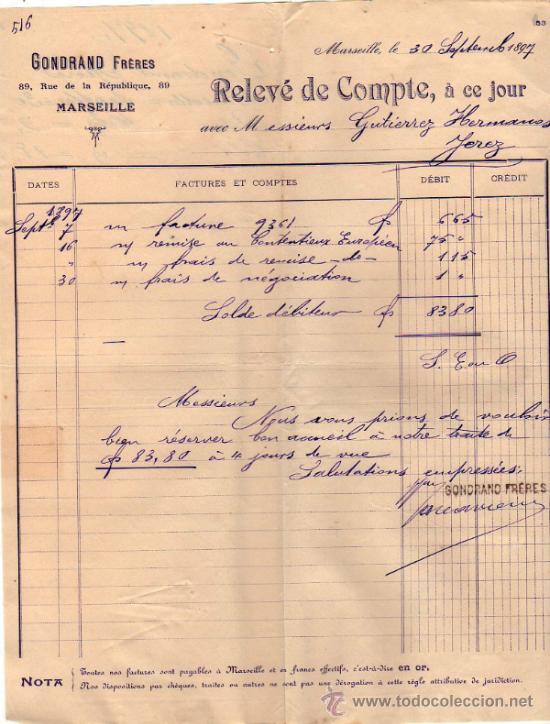 516
53
GONDRAND FRÈRES
89, Rue de la République, 89
MARSEILLE
Marseille, le 30 Septemb 1897
Relevé de Compte, à ce jour
avec Messieurs Gutierrez Hermanos
Jerez
DATES FACTURES ET COMPTES DÉBIT CRÉDIT
1897
Septb 7 m/ facture 9361 f 6 65
16 m/ remise au Contentieux Européen 75 "
" m/ frais de remise -do- 1 15
30 m/ frais de négociation 1 "
Solde débiteur f 83 80
S. E ou O
Messieurs
Nous vous prions de vouloir
bien réserver bon accueil à notre traite de
f 83,80 à 4 jours de vue
Salutations empressées.
GONDRAND FRÈRES
NOTA
Toutes nos factures sont payables à Marseille et en francs effectifs, c'est-à-dire en or.
Nos dispositions par chèques, traites ou autres ne sont pas une dérogation à cette règle attributive de juridiction.
todocoleccion.net